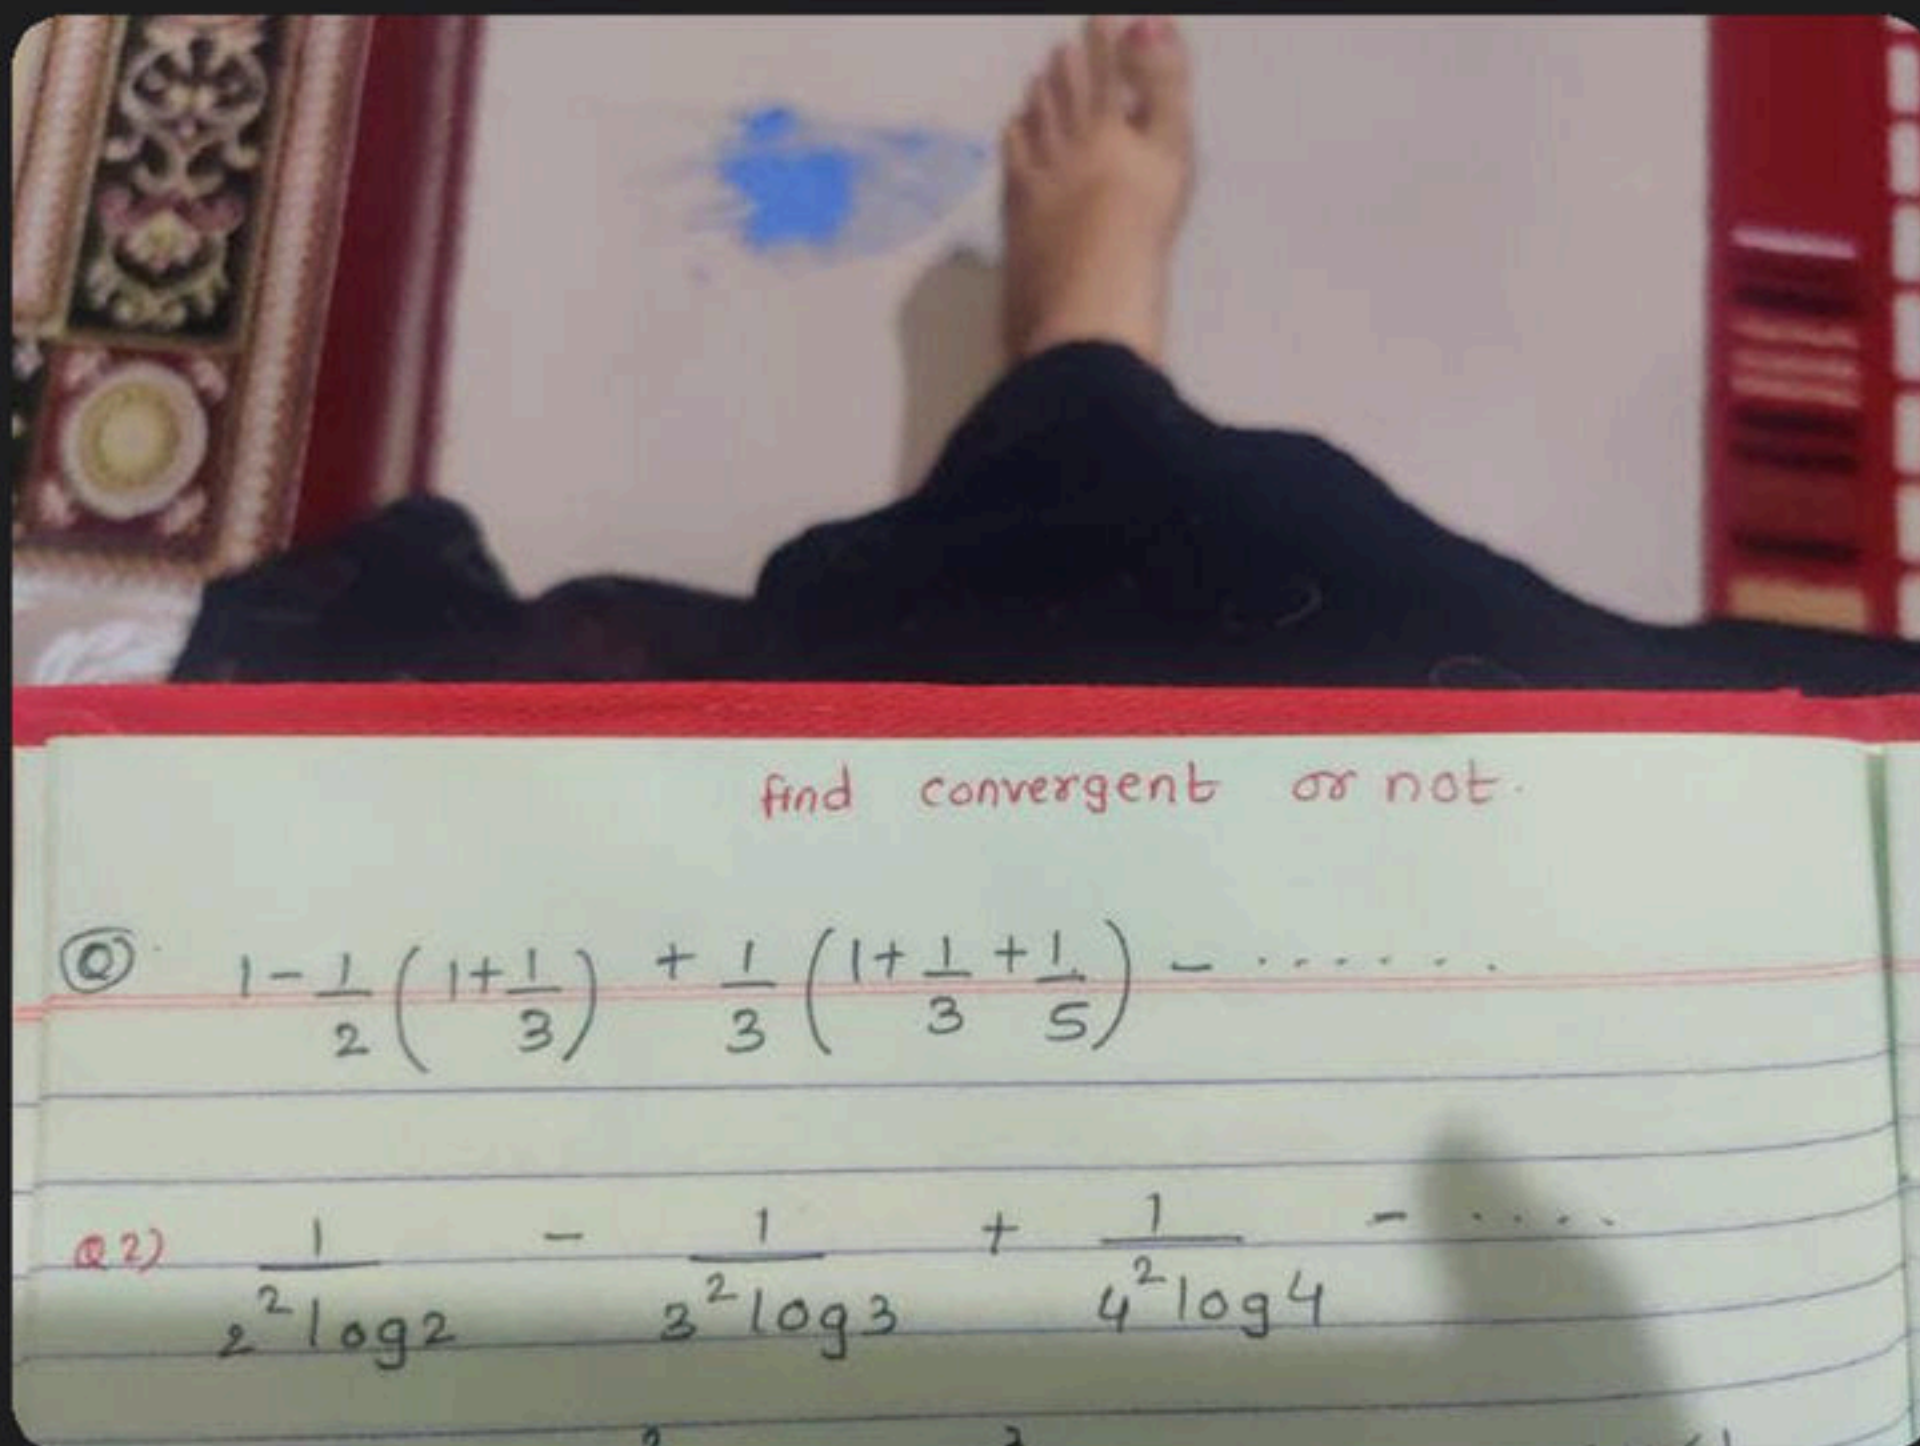 find convergent or not.
Q 1 - 1/2 (1 + 1/3) + 1/3 (1 + 1/3 + 1/5) - .......
Q2) 1/2² log2 - 1/3² log3 + 1/4² log4 - ....